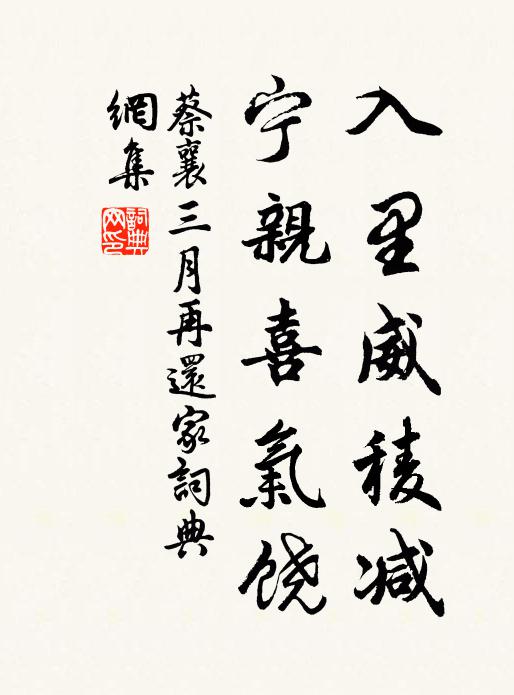 入里威稜减
宁親喜氣饶
蔡襄三月再還家詞典
網集
詞典网印